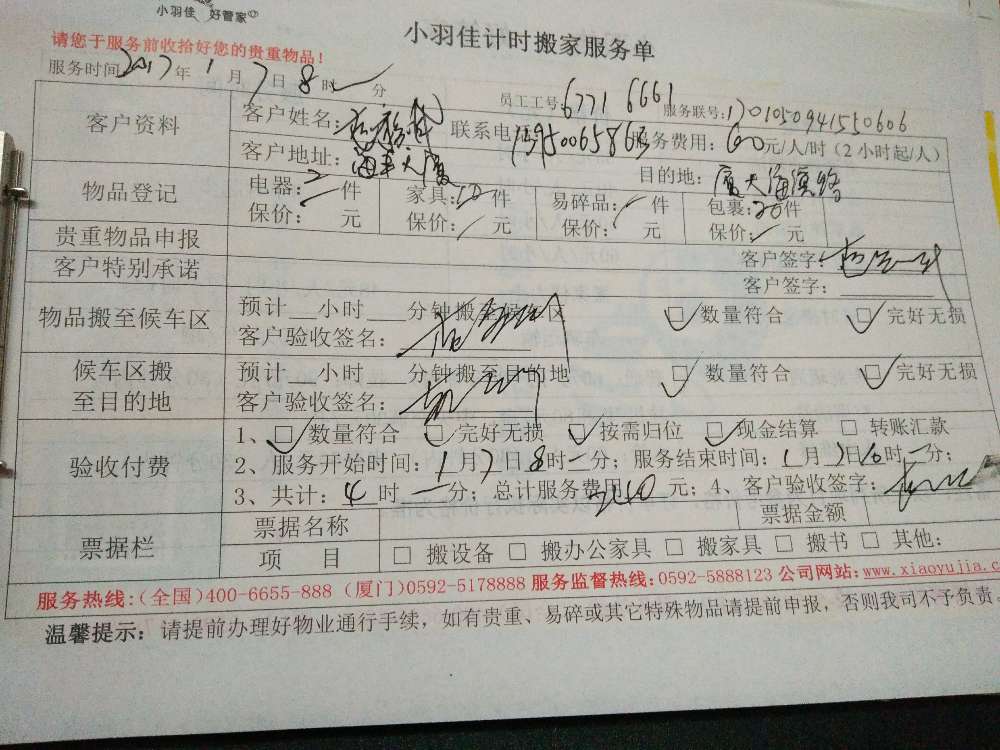 小羽佳 好管家
小羽佳计时搬家服务单
请您于服务前收拾好您的贵重物品!
服务时间2017年1月7日8时 分
员工工号:6771 6661 服务联号:170105094155 0606
客户资料 客户姓名: 联系电话: 服务费用:60元/人/时(2小时起/人)
客户地址: 目的地:
物品登记 电器:2件 家具:10件 易碎品:/件 包裹:20件
保价:/元 保价:/元 保价:/元 保价:/元
贵重物品申报 客户签字:
客户特别承诺 客户签字:
物品搬至候车区 预计 小时 分钟搬至候车区 ☑数量符合 ☑完好无损
客户验收签名:
候车区搬至目的地 预计 小时 分钟搬至目的地 ☑数量符合 ☑完好无损
客户验收签名:
验收付费 1、☑数量符合 ☑完好无损 ☑按需归位 ☑现金结算 □转账汇款
2、服务开始时间:1月7日8时 分;服务结束时间:1月7日 时 分;
3、共计:4时 分;总计服务费用 元;4、客户验收签字:
票据栏 票据名称 票据金额
项 目 □搬设备 □搬办公家具 □搬家具 □搬书 □其他:
服务热线:(全国)400-6655-888 (厦门)0592-5178888 服务监督热线:0592-5888123 公司网站:www.xiaoyujia.c
温馨提示:请提前办理好物业通行手续,如有贵重、易碎或其它特殊物品请提前申报,否则我司不予负责